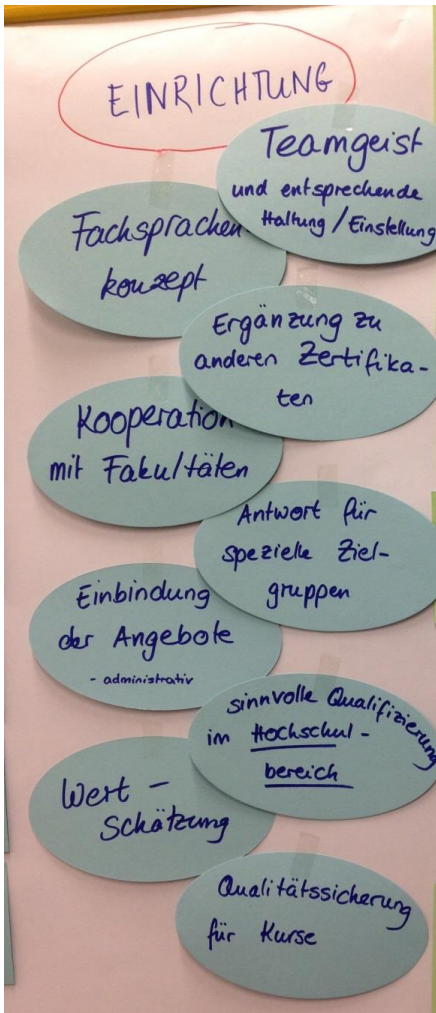 EINRICHTUNG
Teamgeist
und entsprechende
Haltung / Einstellung
Fachsprachen
konzept
Ergänzung zu
anderen Zertifika-
ten
Kooperation
mit Fakultäten
Antwort für
spezielle Ziel-
gruppen
Einbindung
der Angebote
- administrativ
sinnvolle Qualifizierung
im Hochschul-
bereich
Wert-
Schätzung
Qualitätssicherung
für Kurse